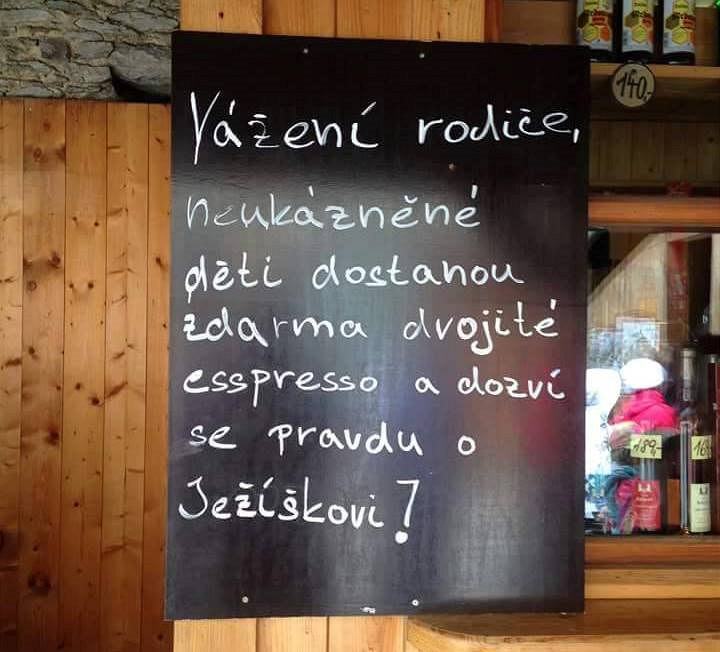 Vážení rodiče,
neukázněné
děti dostanou
zdarma dvojité
esspresso a dozví
se pravdu o
Ježíškovi!
140,-
189,-